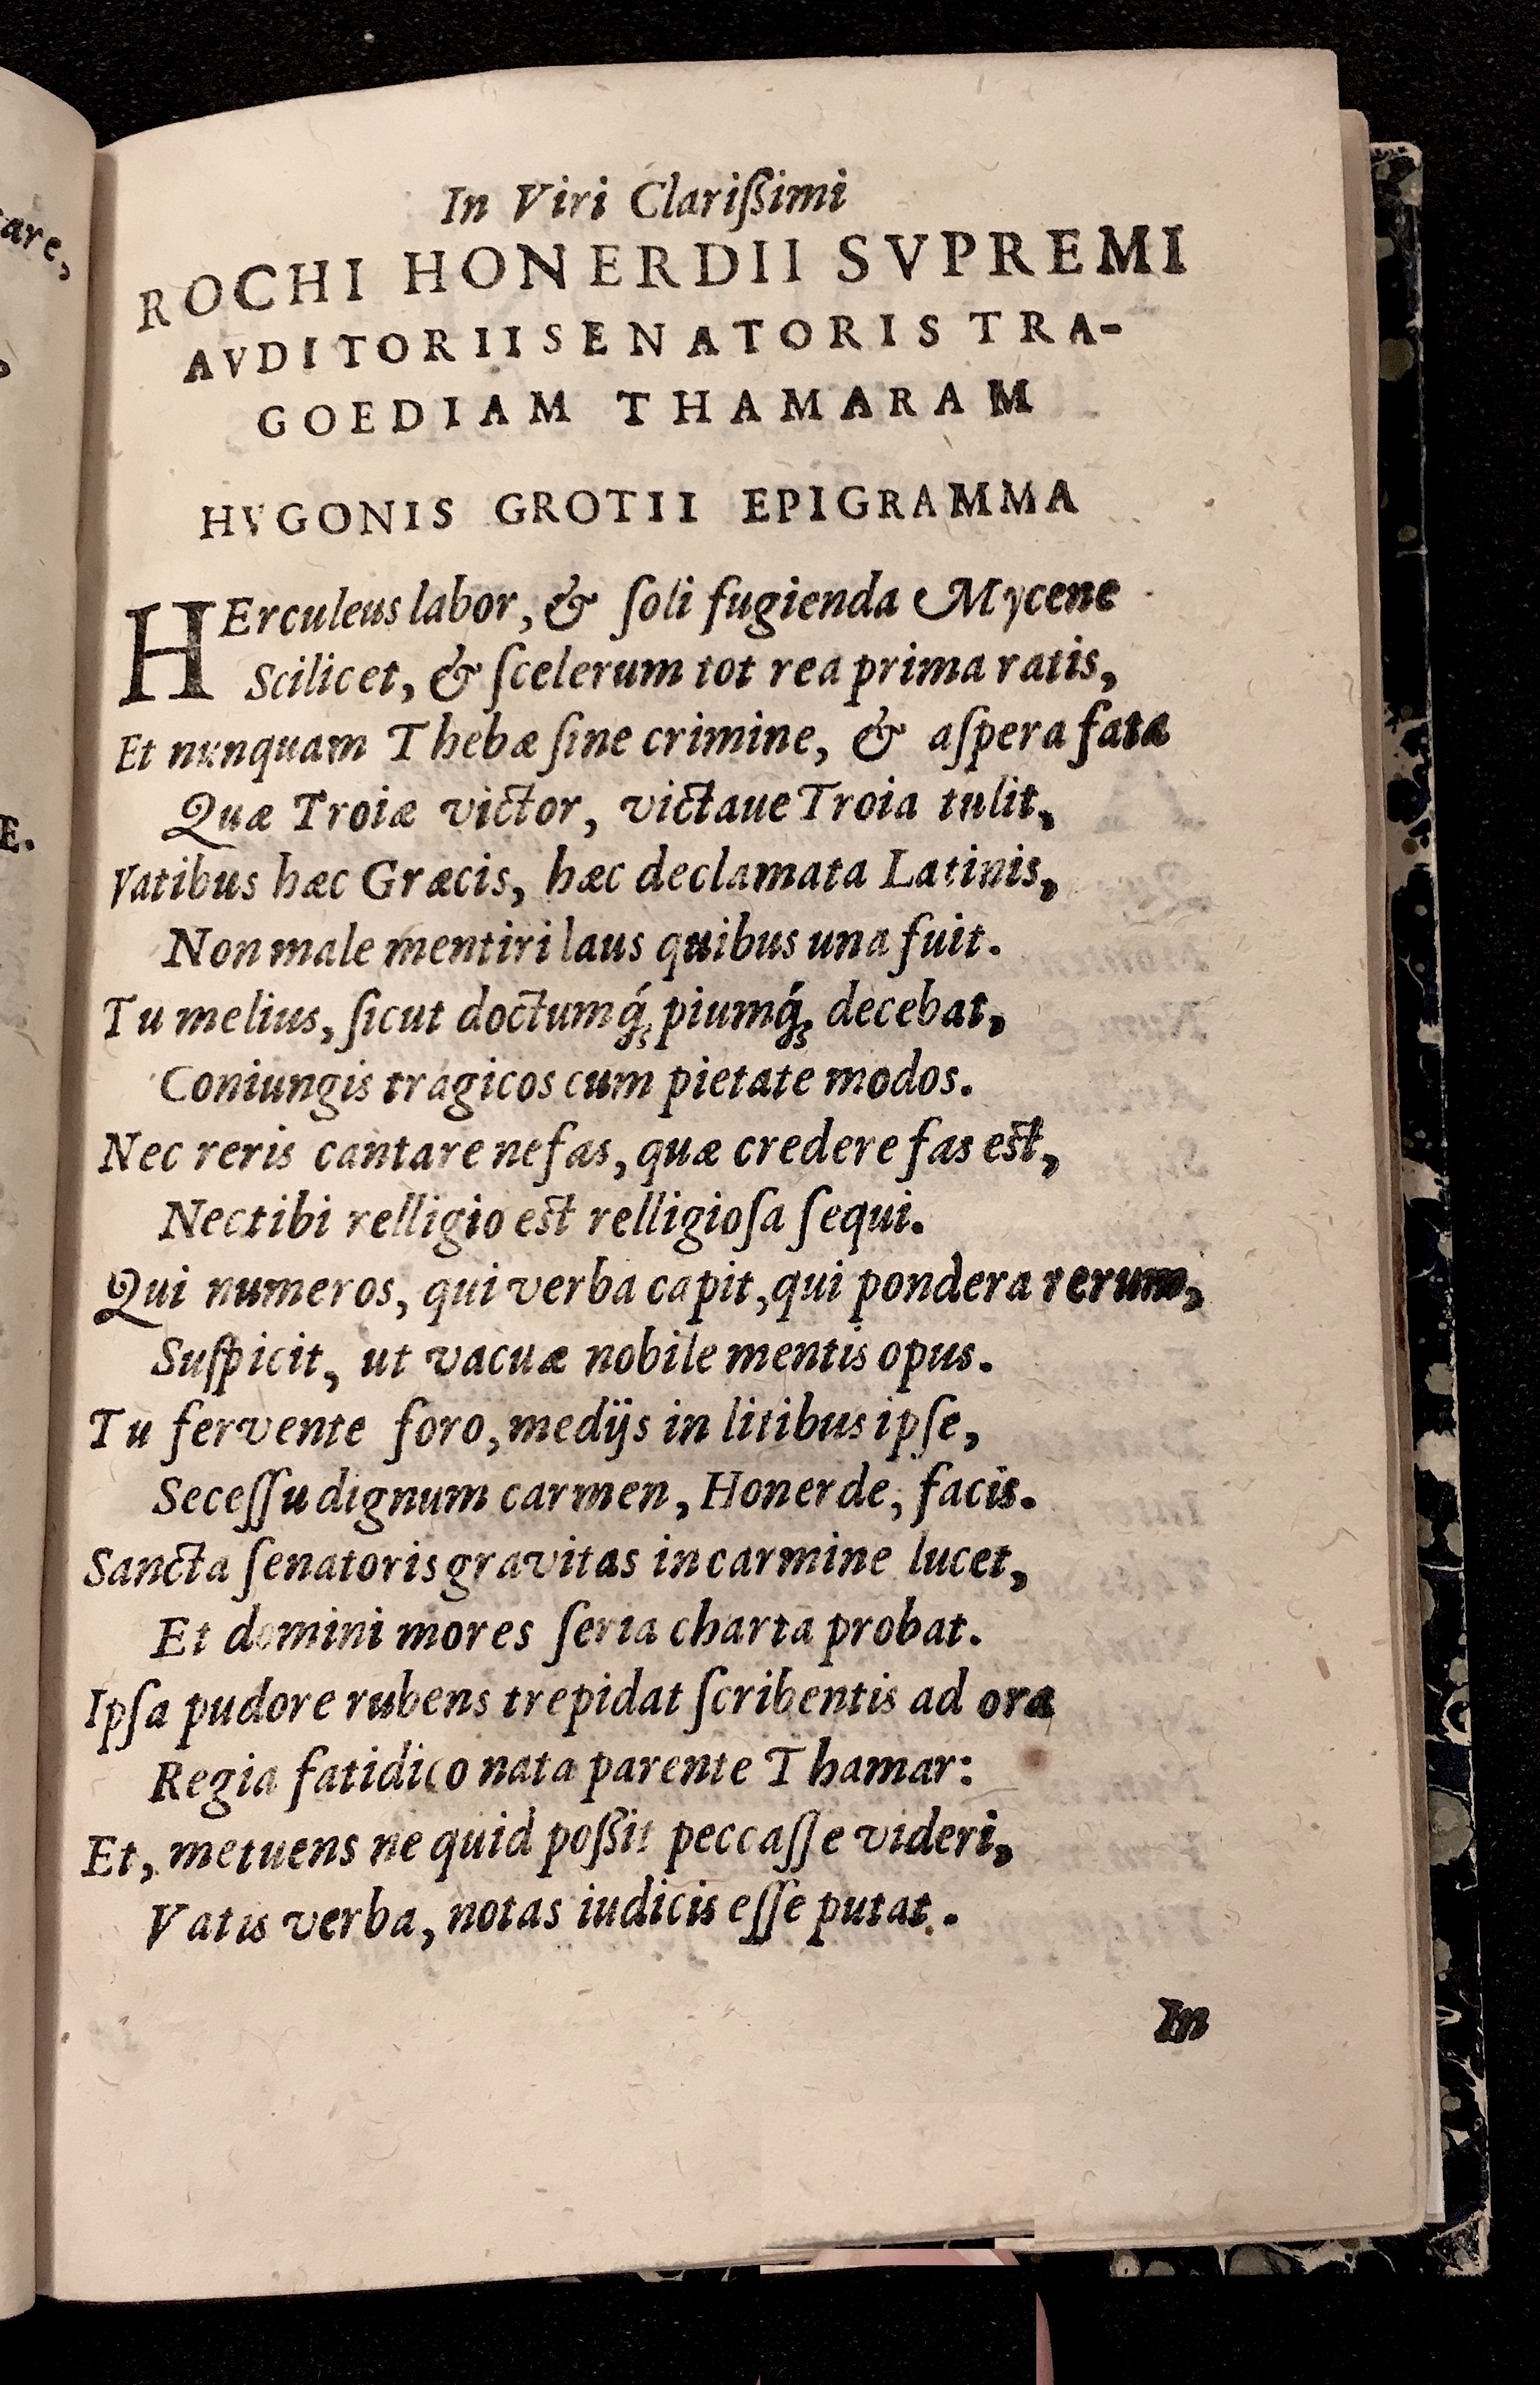 are,
E.
In Viri Clarißimi
ROCHI HONERDII SVPREMI
AVDITORII SENATORIS TRA-
GOEDIAM THAMARAM
HVGONIS GROTII EPIGRAMMA
HErculeus labor, & ſoli fugienda Mycene
Scilicet, & ſcelerum tot rea prima ratis,
Et nunquam Thebæ ſine crimine, & aſpera fata
Quæ Troiæ victor, victaue Troia tulit,
Vatibus hæc Græcis, hæc declamata Latinis,
Non male mentiri laus quibus una fuit.
Tu melius, ſicut doctumq́; piumq́; decebat,
Coniungis tragicos cum pietate modos.
Nec reris cantare nefas, quæ credere fas est,
Nec tibi relligio est relligioſa ſequi.
Qui numeros, qui verba capit, qui pondera rerum,
Suſpicit, ut vacuæ nobile mentis opus.
Tu fervente foro, medijs in litibus ipſe,
Seceſſu dignum carmen, Honerde, facis.
Sancta ſenatoris gravitas in carmine lucet,
Et domini mores ſeria charta probat.
Ipſa pudore rubens trepidat ſcribentis ad ora
Regia fatidico nata parente Thamar:
Et, metuens ne quid poßit peccaſſe videri,
Vatis verba, notas iudicis eſſe putat.
In